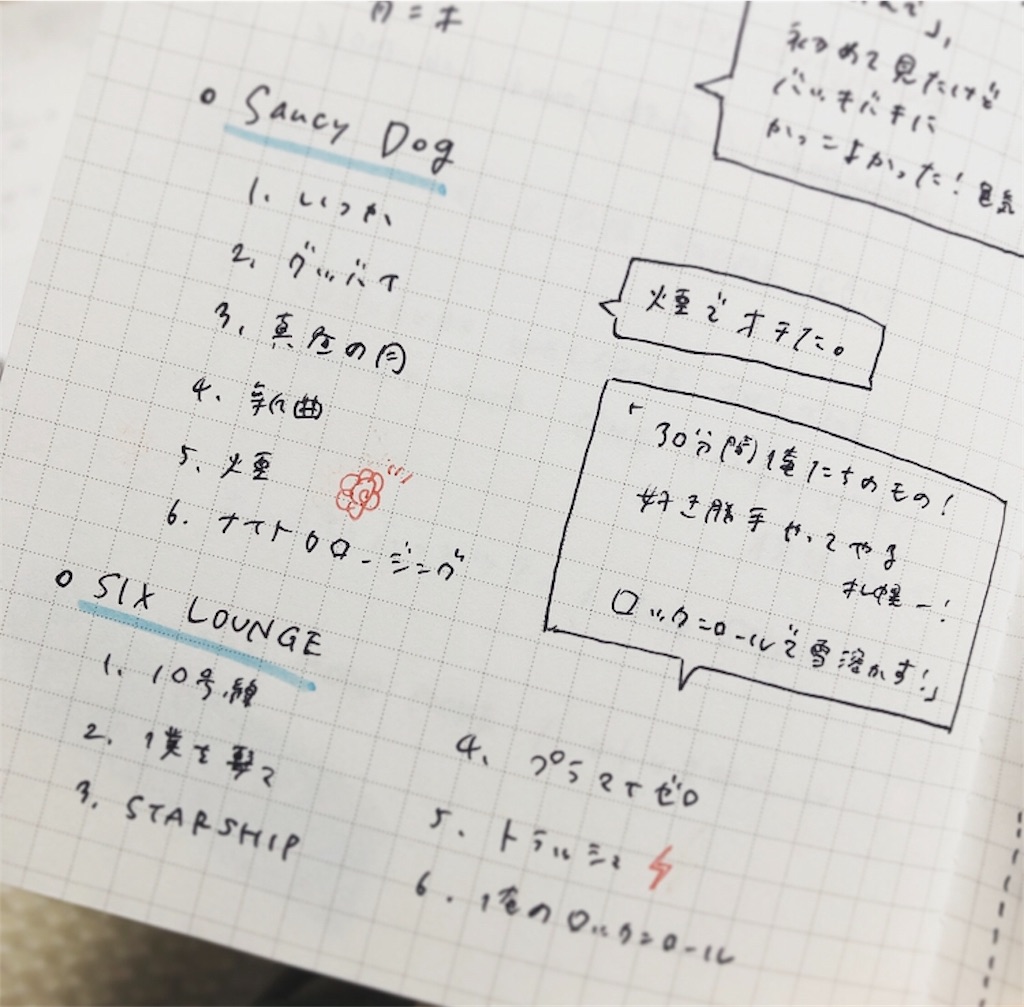 月二木
んで」、
初めて見たけど
バッキバキに
かっこよかった！電気
• Saucy Dog
1. いつか
2. グッバイ
3. 真昼の月
4. 新曲
5. 煙
6. ナイトクロージング
煙でオチた。
「30分間俺たちのもの！
好き勝手やってやる
札幌ー！
ロックンロールで雪溶かす！」
• SIX LOUNGE
1. 10号線
2. 僕を撃て
3. STARSHIP
4. プラマイゼロ
5. トラッシュ
6. 俺のロックンロール